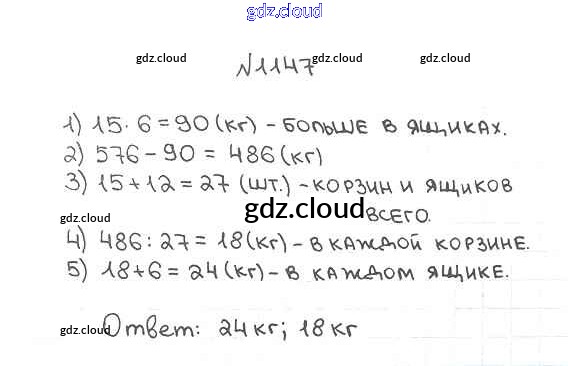 gdz.cloud
gdz.cloud gdz.cloud gdz.cloud
№1147
1) 15 · 6 = 90 (кг) - больше в ящиках.
2) 576 - 90 = 486 (кг)
3) 15 + 12 = 27 (шт.) - корзин и ящиков
gdz.cloud gdz.cloud всего.
4) 486 : 27 = 18 (кг) - в каждой корзине.
5) 18 + 6 = 24 (кг) - в каждом ящике.
gdz.cloud Ответ: 24 кг; 18 кг
gdz.cloud